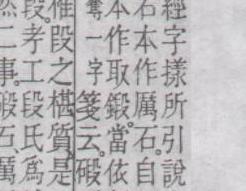 經字樣所引說
石本作厲石自
本作取鍛當依
奪一字箋云碫
催段之椹質是
段孝工段氏爲
二事碫石厲